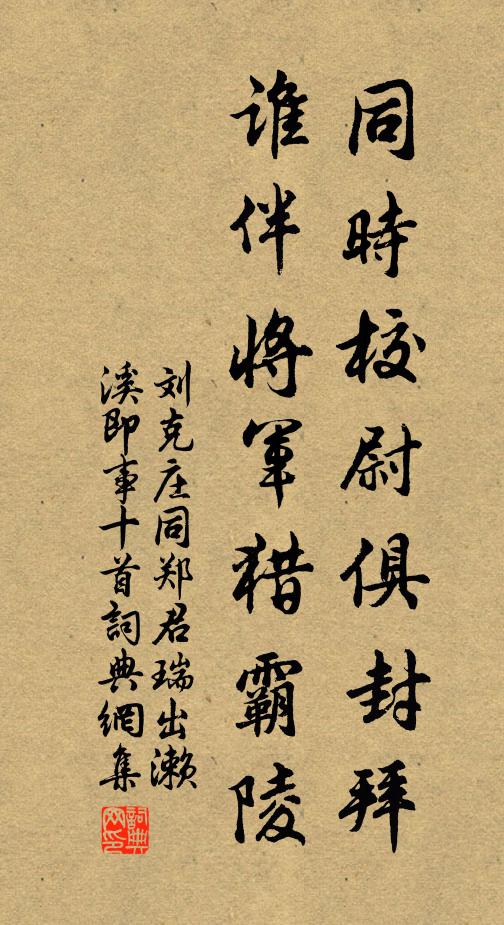 同時校尉俱封拜
谁伴將軍猎霸陵
刘克庄同郑君瑞出濑
溪即事十首詞典網集
詞典
网印